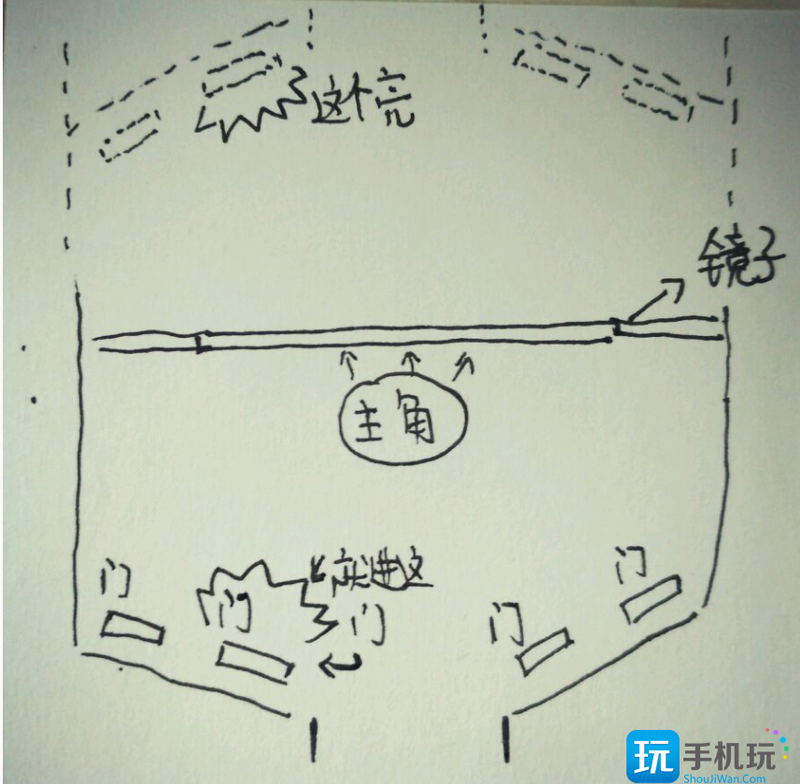 这个亮
镜子
主角
门
门
就进这
门
门
门
玩 手机玩
ShouJiWan.Com